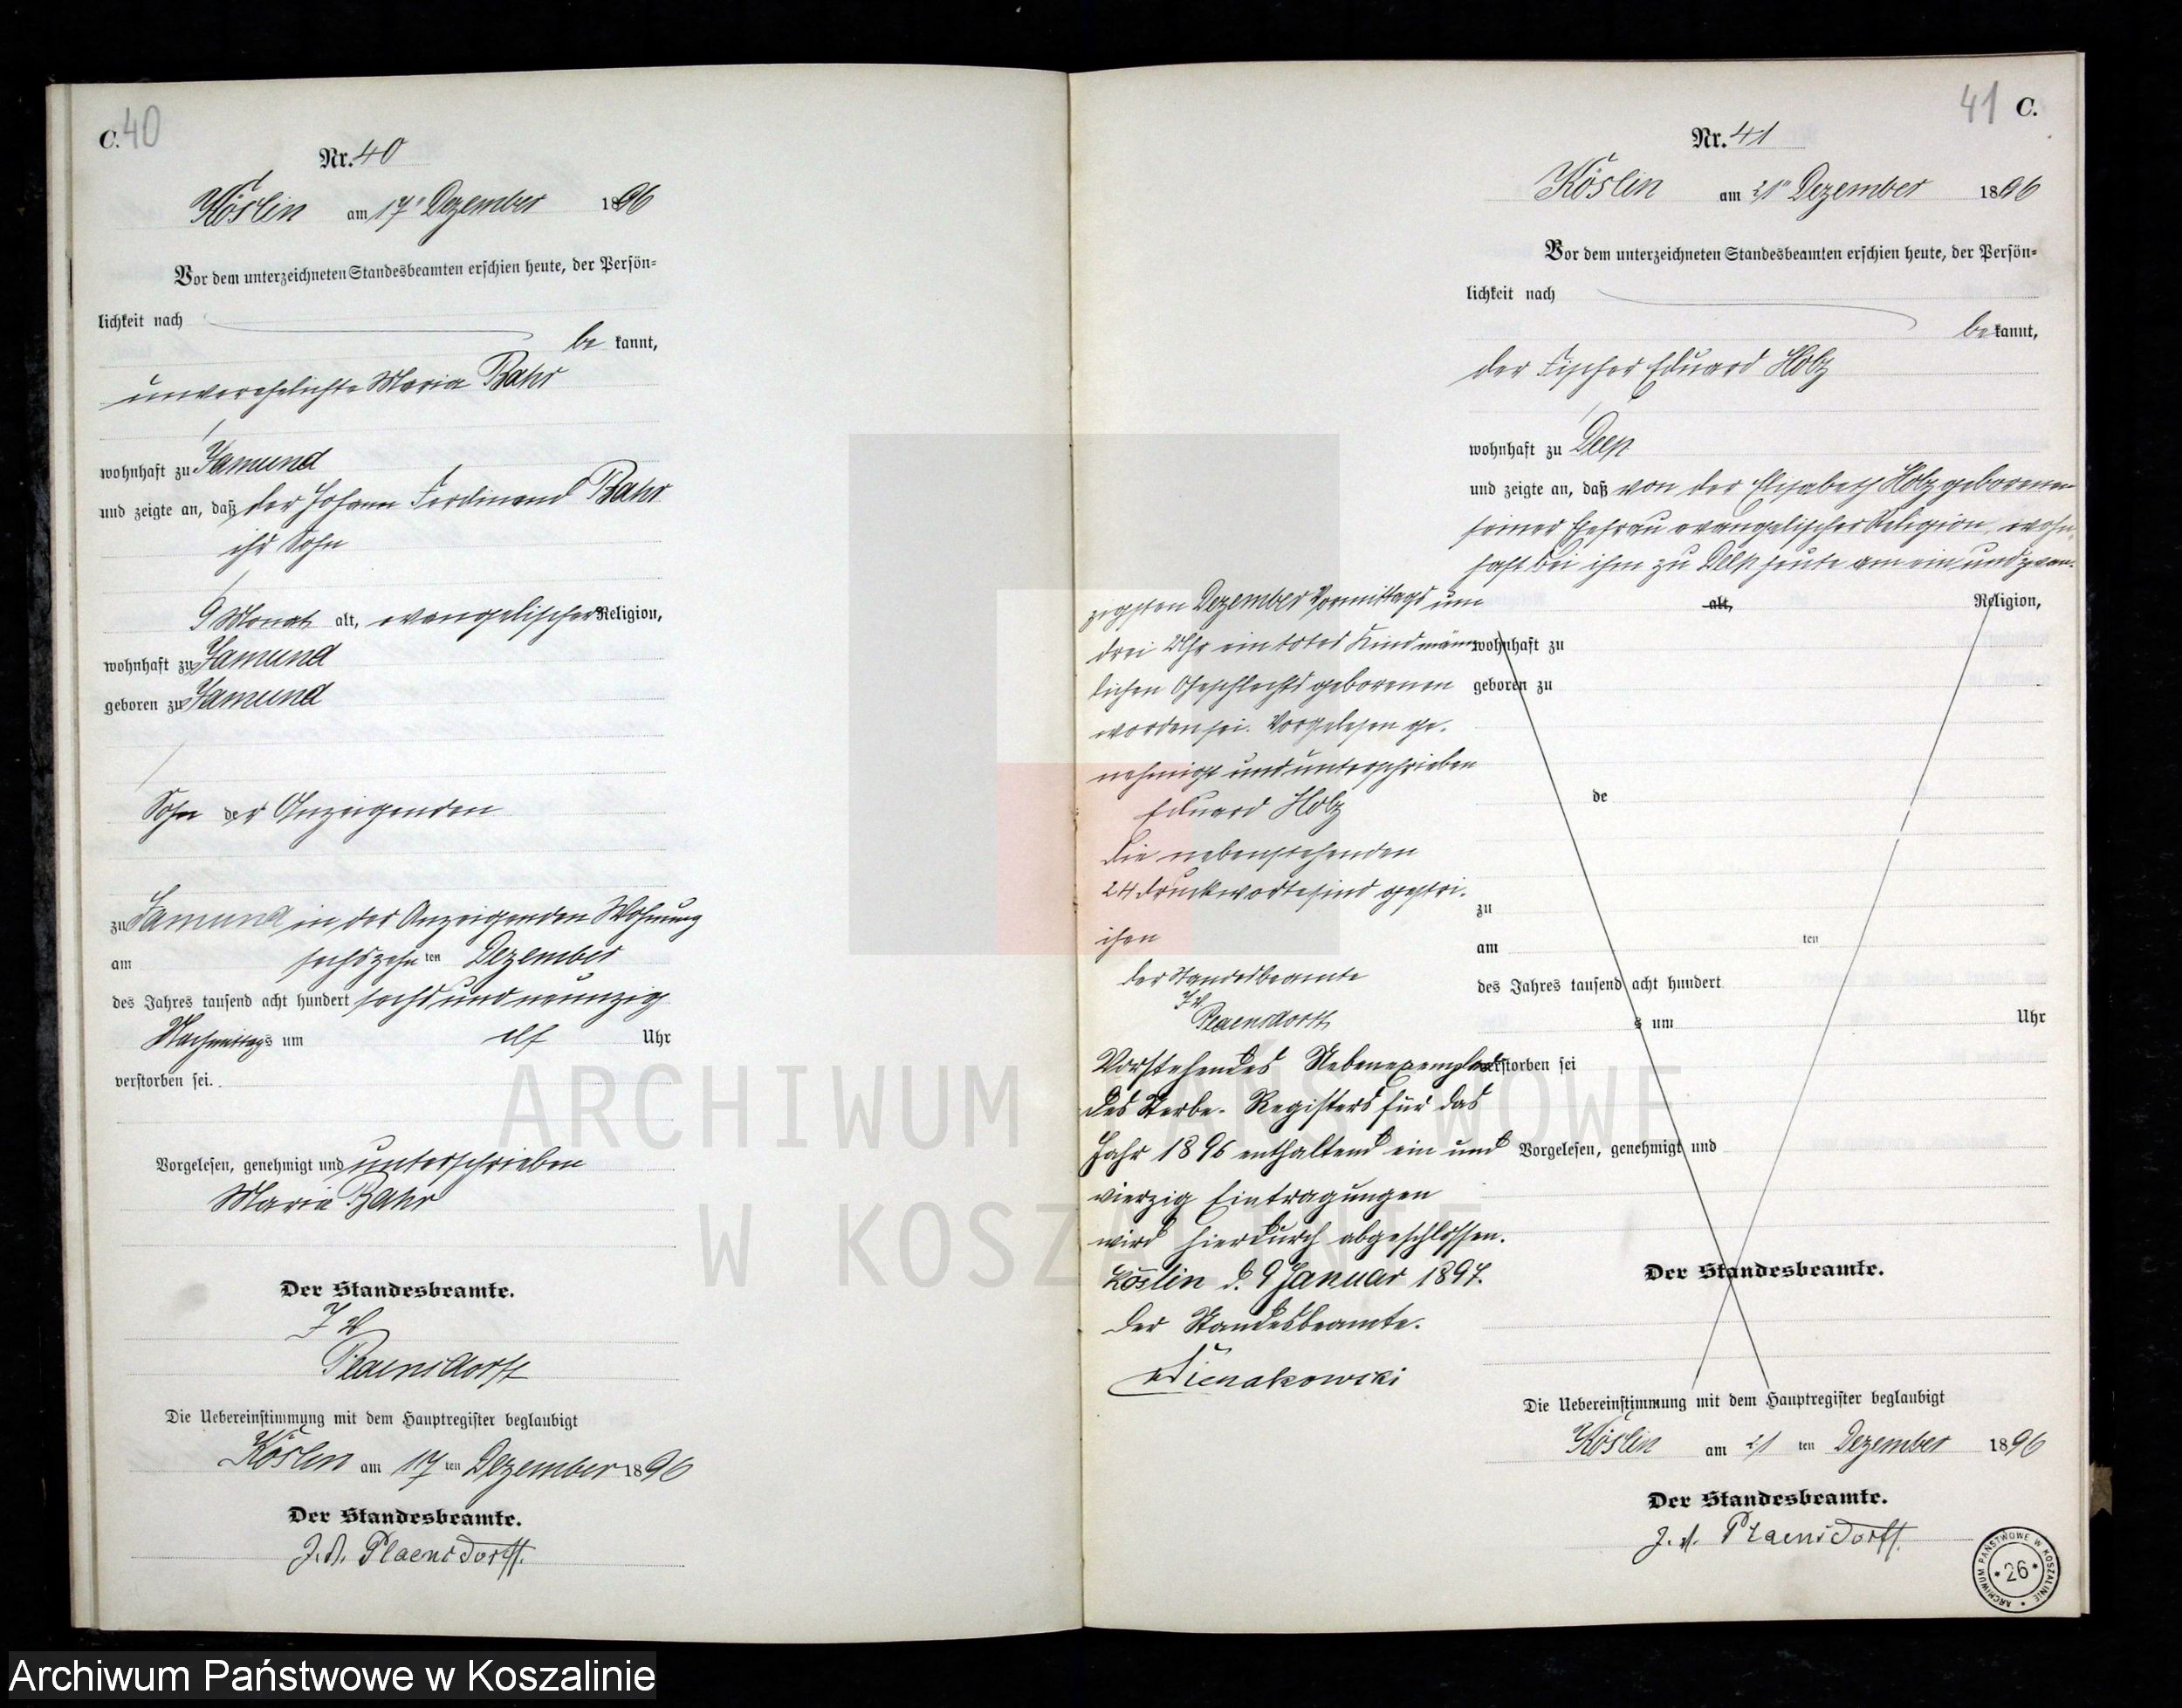 C. 40
Nr. 40
Köslin am 17ten Dezember 1896
Vor dem unterzeichneten Standesbeamten erschien heute, der Persön=
lichkeit nach
be kannt,
unverehelichte Maria Bahr
wohnhaft zu Jamund
und zeigte an, daß der Johann Ferdinand Bahr
ihr Sohn
9 Monat alt, evangelischer Religion,
wohnhaft zu Jamund
geboren zu Jamund
Sohn der Anzeigenden
zu Jamund in der Anzeigenden Wohnung
am sechszehnten Dezember
des Jahres tausend acht hundert sechs und neunzig
Nachmittags um elf Uhr
verstorben sei.
Vorgelesen, genehmigt und unterschrieben
Maria Bahr
Der Standesbeamte.
J V
Plaensdorff
Die Uebereinstimmung mit dem Hauptregister beglaubigt
Köslin am 17ten Dezember 1896
Der Standesbeamte.
J. V. Plaensdorff.
41 C.
Nr. 41
Köslin am 21ten Dezember 1896
Vor dem unterzeichneten Standesbeamten erschien heute, der Persön=
lichkeit nach
be kannt,
der Fischer Eduard Holz
wohnhaft zu Deep
und zeigte an, daß von der Elisabeth Holz geborenen
seiner Ehefrau evangelischer Religion, wohn-
haft bei ihm zu Deep heute am ein und zwan-
zigsten Dezember Vormittags um
drei Uhr ein totes Kind männ-
lichen Geschlechts geborenen
worden sei. Vorgelesen ge-
nehmigt und unterschrieben
Eduard Holz
Die nebenstehenden
24 Druckworte sind gestri-
chen
Der Standesbeamte
J V
Plaensdorff
Vorstehendes Nebenexemplar
des Sterbe-Registers für das
Jahr 1896 enthaltend ein und
vierzig Eintragungen
wird hierdurch abgeschlossen.
Köslin d. 9 Januar 1897.
Der Standesbeamte.
alt, Religion,
wohnhaft zu
geboren zu
de
zu
am ten
des Jahres tausend acht hundert
s um Uhr
verstorben sei
Vorgelesen, genehmigt und
Der Standesbeamte.
Die Uebereinstimmung mit dem Hauptregister beglaubigt
Köslin am 21 ten Dezember 1896
Der Standesbeamte.
J. V. Plaensdorff.
ARCHIWUM PAŃSTWOWE W KOSZALINIE
26
ARCHIWUM PAŃSTWOWE
W KOSZALINIE
Archiwum Państwowe w Koszalinie